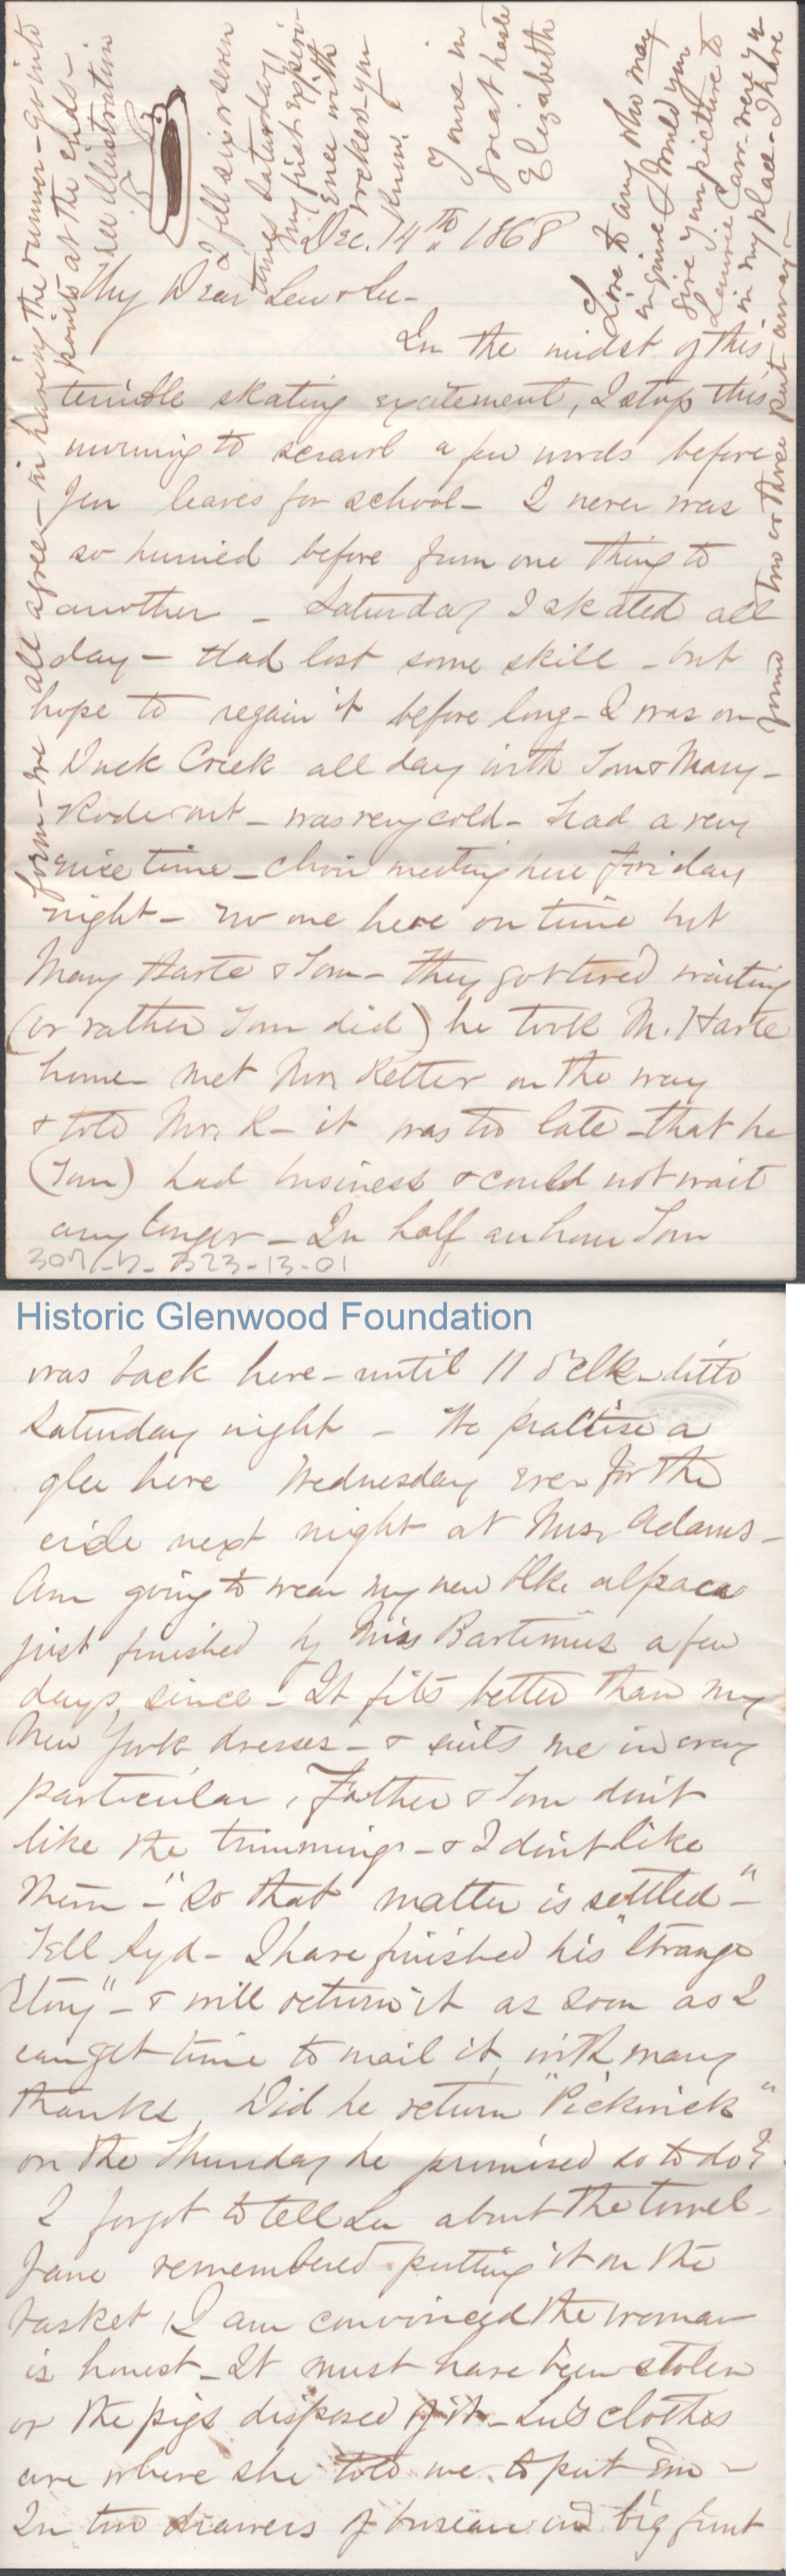 Dec. 14th 1868
My Dear Lew & Lu -
In the midst of this
terrible skating excitement, I stop this
morning to scrawl a few words before
Jen leaves for school - I never was
so hurried before from one thing to
another - Saturday I skated all
day - Had lost some skill - but
hope to regain it before long - I was on
Duck Creek all day with Tom & Mary -
Rode out - was very cold - had a very
nice time - choir meeting here Friday
night - no one here on time but
Mary Harte & Tom - They got tired waiting
(or rather Tom did) he took M. Harte
home - met Mrs Ketter on the way
& told Mrs. K - it was too late - that he
(Tom) had business & could not wait
any longer - In half an hour Tom
307-b-B23-13-01
Historic Glenwood Foundation
was back here - until 11 o'clk - ditto
Saturday night - We practise a
glee here Wednesday eve - for the
next night at Mrs. Adams -
Am going to wear my new blk. alpaca
just finished by Miss Bartimus a few
days, since - It fits better than my
New York dresses - & suits me in every
particular, Father & Tom don't
like the trimmings - & I don't like
them - "So that matter is settled" -
Tell Syd - I have finished his "Strange
Story" - & will return it as soon as I
can get time to mail it, with many
thanks, Did he return "Pickwick"
on the Thursday he promised so to do?
I forgot to tell Lu about the towel -
Jane remembered putting it on the
basket, I am convinced the woman
is honest - It must have been stolen
or the pigs disposed of it - Lu's clothes
are where she told me to put 'em -
In two drawers of bureau in big front
form - we all agree - in having the runner - go into
points at the ends -
see illustration
I fell six or seven
times Saturday
my first experi-
ence with
rockers - you
know.
Yours in
great haste
Elizabeth
Love to any who may
inquire I would you
give your picture to
Laurie Carr - were you
in my place - I have
found two or three put away -